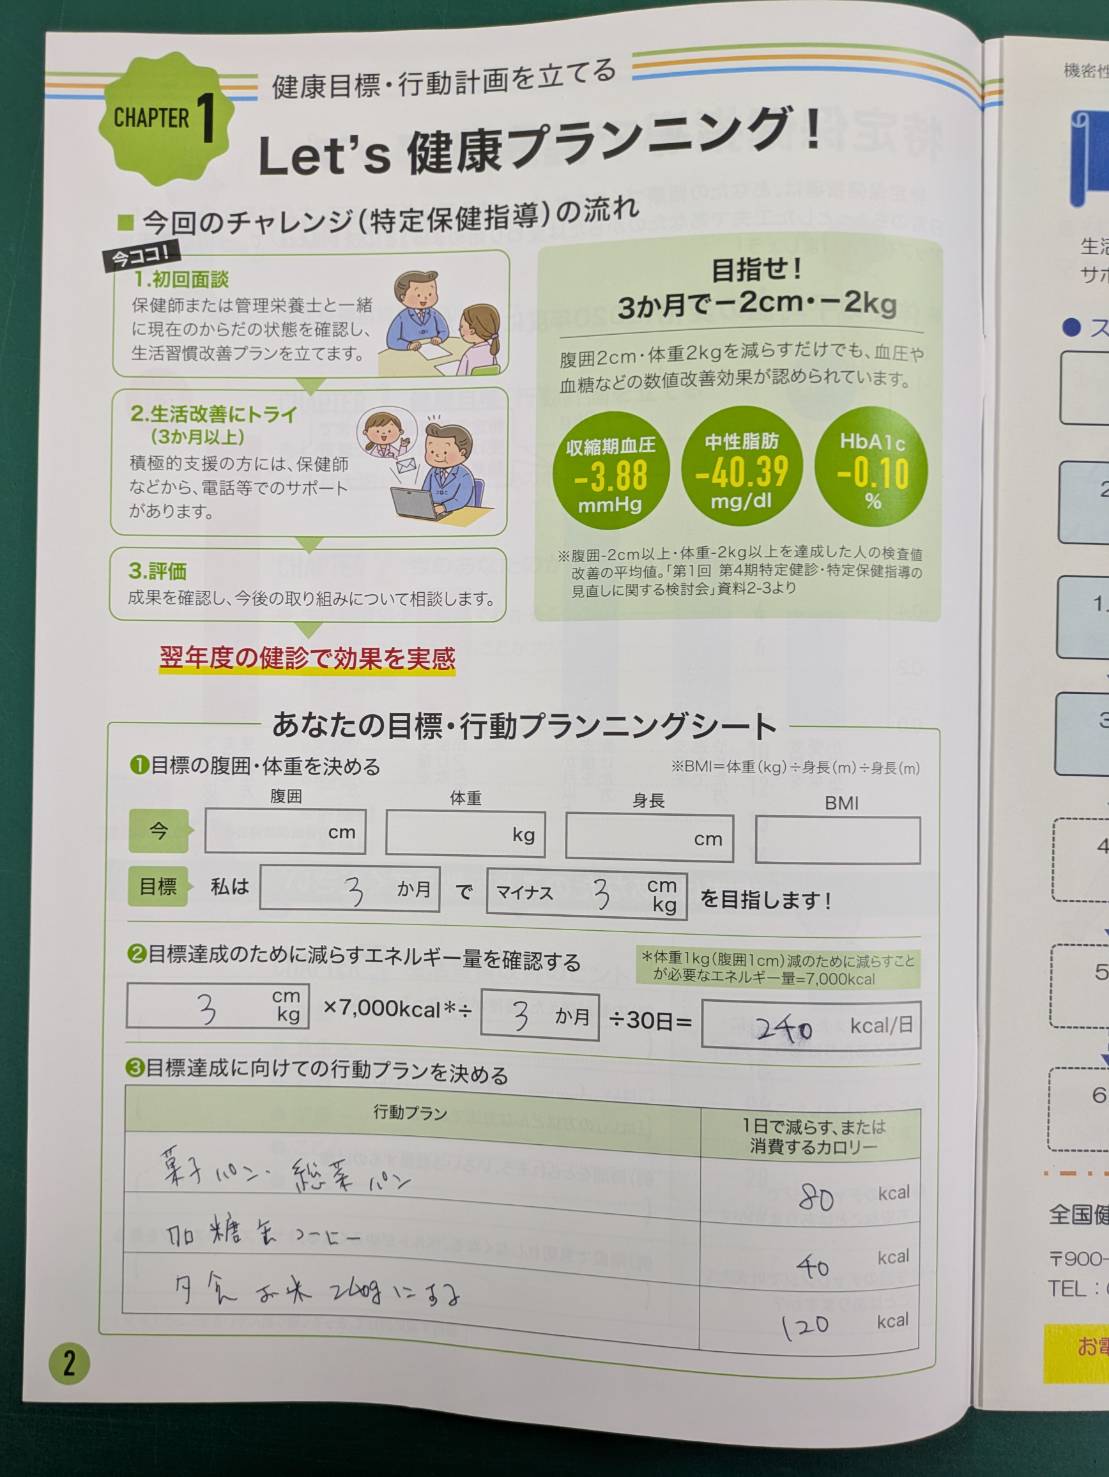 健康目標・行動計画を立てる
CHAPTER 1
Let's 健康プランニング！
■ 今回のチャレンジ(特定保健指導)の流れ
今ココ！
1.初回面談
保健師または管理栄養士と一緒
に現在のからだの状態を確認し、
生活習慣改善プランを立てます。
2.生活改善にトライ
(3か月以上)
積極的支援の方には、保健師
などから、電話等でのサポート
があります。
3.評価
成果を確認し、今後の取り組みについて相談します。
翌年度の健診で効果を実感
目指せ！
3か月で－2cm・－2kg
腹囲2cm・体重2kgを減らすだけでも、血圧や
血糖などの数値改善効果が認められています。
収縮期血圧
-3.88
mmHg
中性脂肪
-40.39
mg/dl
HbA1c
-0.10
%
※腹囲-2cm以上・体重-2kg以上を達成した人の検査値
改善の平均値。「第1回 第4期特定健診・特定保健指導の
見直しに関する検討会」資料2-3より
あなたの目標・行動プランニングシート
❶目標の腹囲・体重を決める
※BMI＝体重(kg)÷身長(m)÷身長(m)
腹囲 体重 身長 BMI
今 cm kg cm
目標 私は 3 か月 で マイナス 3 cm kg を目指します！
❷目標達成のために減らすエネルギー量を確認する
＊体重1kg(腹囲1cm)減のために減らすこと
が必要なエネルギー量=7,000kcal
3 cm kg ×7,000kcal＊÷ 3 か月 ÷30日＝ 240 kcal/日
❸目標達成に向けての行動プランを決める
行動プラン 1日で減らす、または
消費するカロリー
菓子パン・総菜パン 80 kcal
加糖缶コーヒー 40 kcal
夕食お米260gにする 120 kcal
2
機密性
生活
サポ
● ス
2
1.
3
4
5
6
全国健
〒900-
TEL：
お電